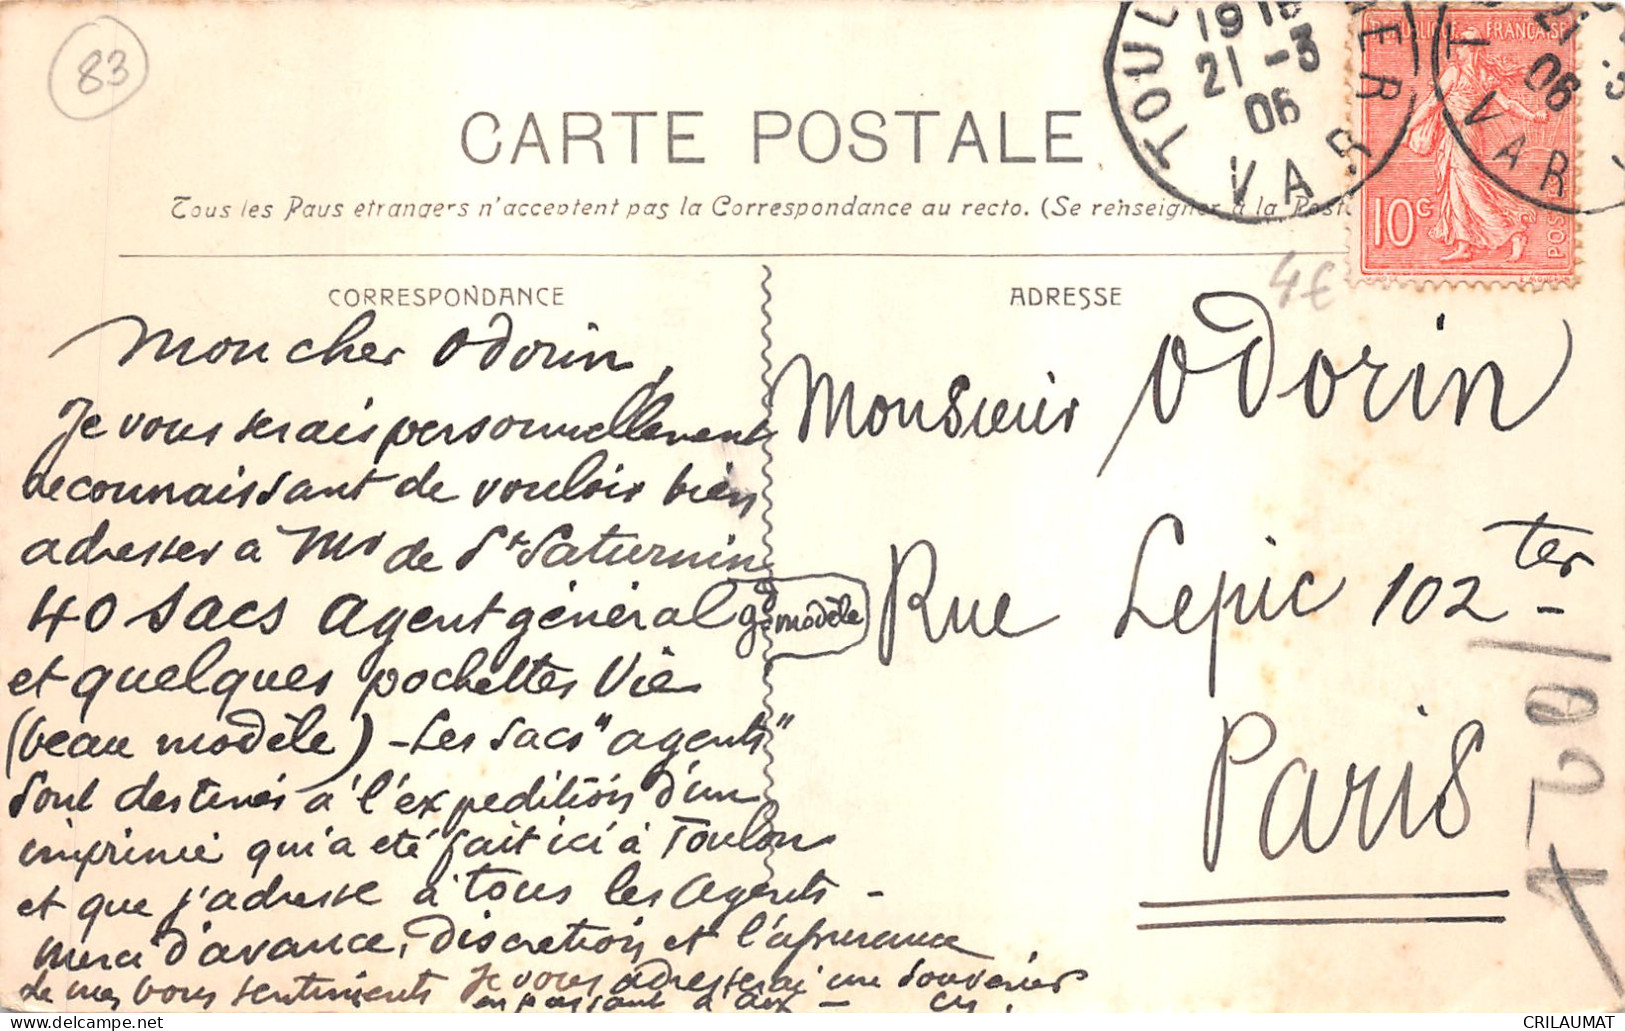 83
CARTE POSTALE
Tous les Pays etrangers n'acceptent pas la Correspondance au recto. (Se renseigner à la Poste
TOUL
19 15
21 - 3
06
VAR
ER
REPUBLIQUE FRANÇAISE
10c
POS
21
06
VAR
4€
CORRESPONDANCE
ADRESSE
Mon cher Odorin,
Je vous serais personnellement
reconnaissant de vouloir bien
adresser à Mr de St Saturnin
40 sacs agent général gd modèle
et quelques pochettes Vie
(beau modèle) - Les sacs "agents"
sont destinés à l'expédition d'un
imprimé qui a été fait ici à Toulon
et que j'adresse à tous les agents -
Merci d'avance, discretion et l'assurance
de mes bons sentiments Je vous adresserai un souvenir
en passant à Aix -
Monsieur Odorin
Rue Lepic 102 ter
Paris
CRILAUMAT